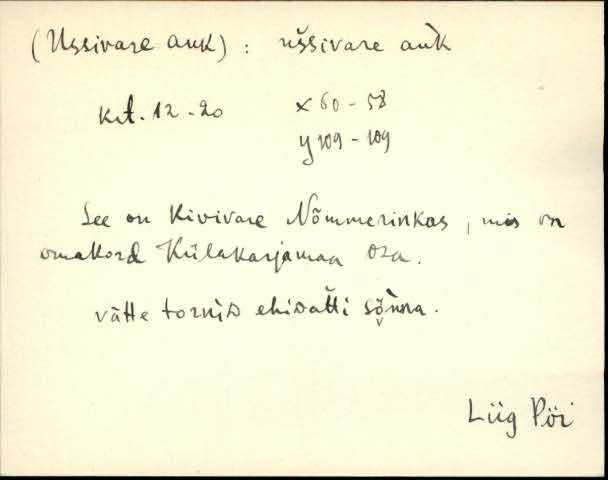 (Ussivare auk) : ùssivare auk
krt. 12-20 x 60-58
y 109-109
See on Kivivare Nõmmerinkas, mis on
omakord Külakarjamaa osa.
vätte tornis ehisatti sõnna.
Liig Pör